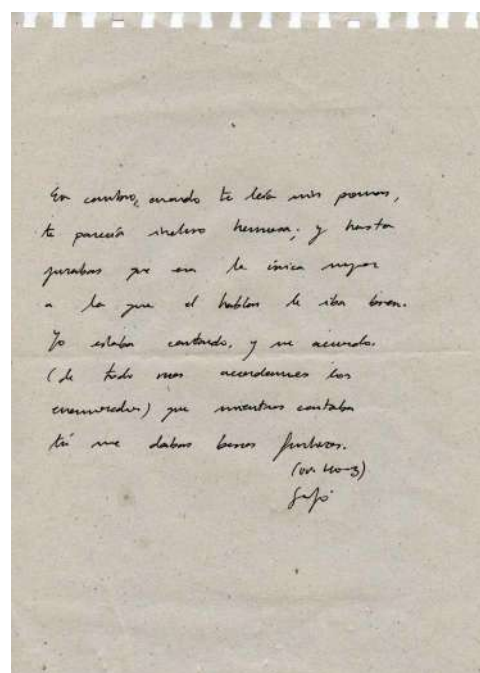 En cambio, cuando te leía mis poemas,
te parecía incluso hermosa; y hasta
jurabas que era la única mujer
a la que el hablar le iba bien.
Yo estaba cantando, y me acuerdo
(de todo nos acordamos los
enamorados) que mientras cantaba
tú me dabas besos furtivos.
(ov. Her)
Safo